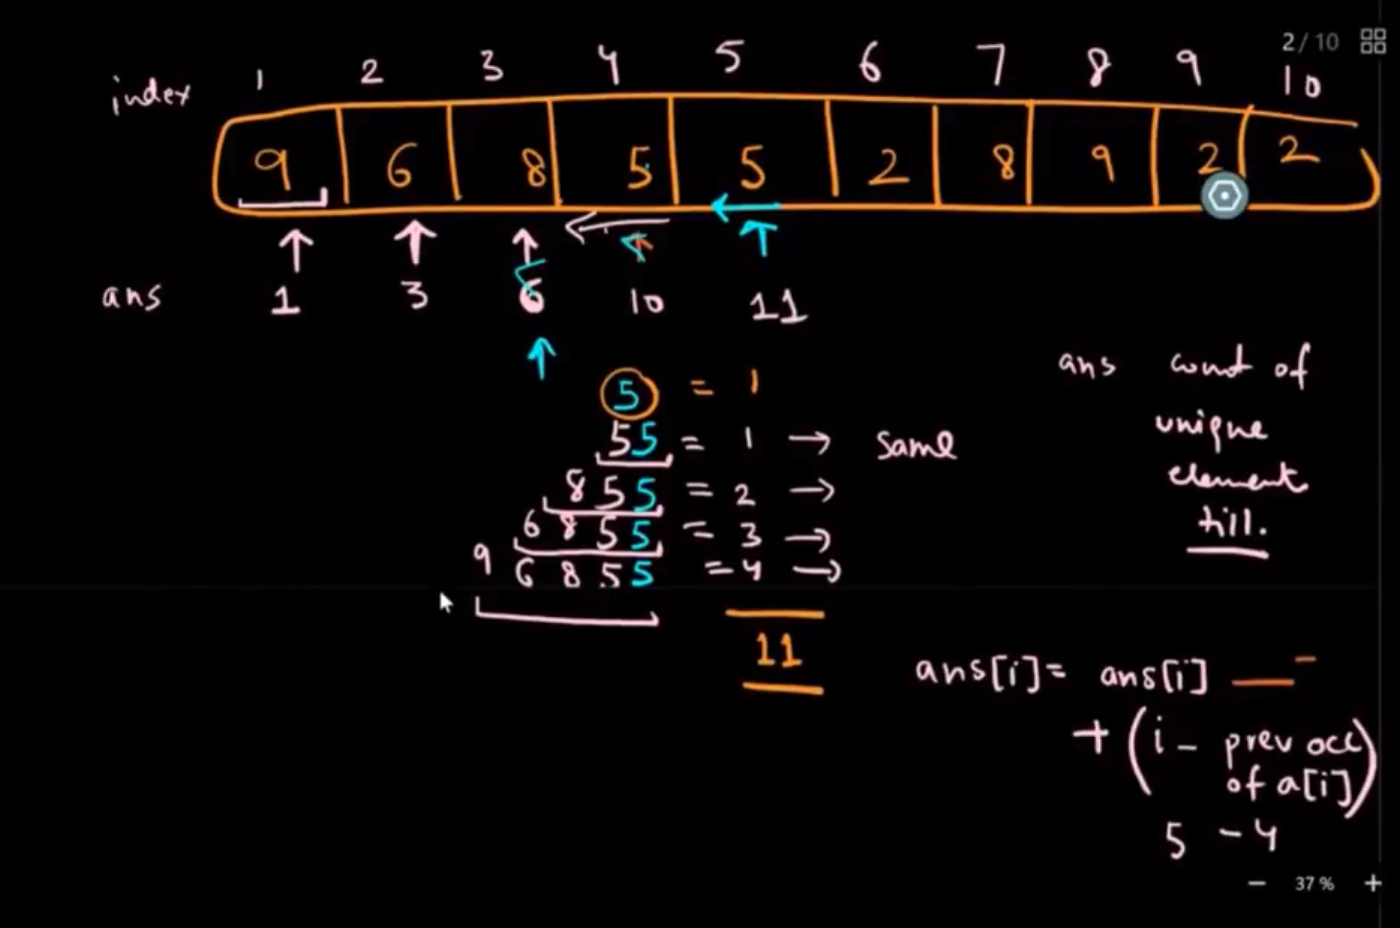 2/10
index 1 2 3 4 5 6 7 8 9 10
9 6 8 5 5 2 8 9 2 2
ans 1 3 6 10 11
5 = 1
55 = 1 → same
855 = 2 →
6855 = 3 →
96855 = 4 →
11
ans count of
unique
element
till.
ans[i] = ans[i] —
+ (i - prev occ
of a[i])
5 - 4
− 37% +